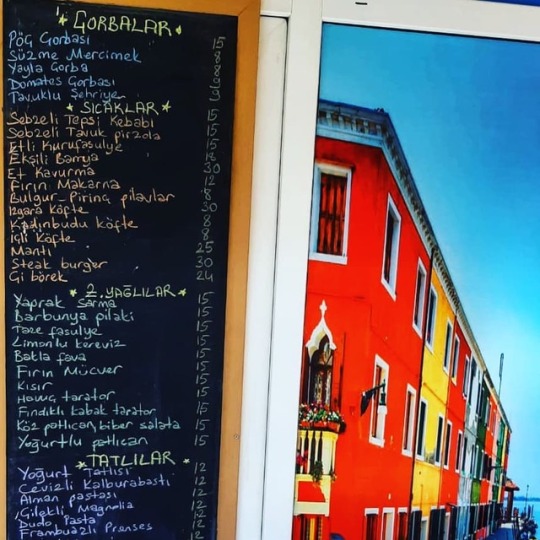 ÇORBALAR
Pöç Çorbası 15
Süzme Mercimek 8
Yayla Çorba 8
Domates Çorbası 9
Tavuklu Şehriye 9
SICAKLAR
Sebzeli Tepsi Kebabı 15
Sebzeli Tavuk pirzola 15
Etli Kurufasulye 15
Ekşili Bamya 18
Et Kavurma 30
Fırın Makarna 12
Bulgur-Pirinç pilavlar 8
Izgara köfte 30
Kadınbudu köfte 8
İçli Köfte 8
Mantı 25
Steak burger 30
Çi börek 24
Z.YAĞLILAR
Yaprak sarma 15
Barbunya pilaki 15
Taze fasulye 15
Limonlu kereviz 15
Bakla fava 15
Fırın Mücver 15
Kısır 15
Havuç tarator 15
Fındıklı kabak tarator 15
Köz patlıcan, biber salata 15
Yoğurtlu patlıcan 15
TATLILAR
Yoğurt Tatlısı 12
Cevizli Kalburabastı 12
Alman pastası 12
Çilekli Magnolia 12
Dudo Pasta 12
Frambuazlı Prenses 12